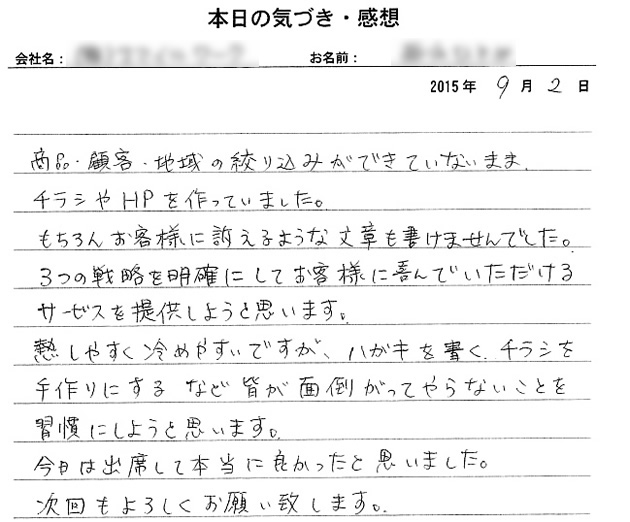 本日の気づき・感想
会社名：
お名前：
2015年 9月 2日
商品・顧客・地域の絞り込みができていないまま、
チラシやHPを作っていました。
もちろんお客様に訴えるような文章も書けませんでした。
3つの戦略を明確にしてお客様に喜んでいただける
サービスを提供しようと思います。
熱しやすく冷めやすいですが、ハガキを書く、チラシを
手作りにする など皆が面倒がってやらないことを
習慣にしようと思います。
今日は出席して本当に良かったと思いました。
次回もよろしくお願い致します。